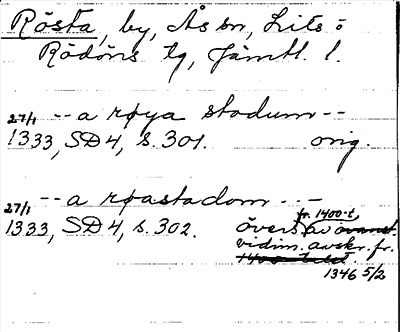 Rösta, by, Ås sn, Lits o
Rödöns tg, Jämtl. l.
27/1 -- a røya stadum --
1333, SD4, s. 301. orig.
-- a røastadom --
27/1 fr. 1400-t,
1333, SD4, s. 302. övers. av
vidim. avskr. fr.
1346 5/2